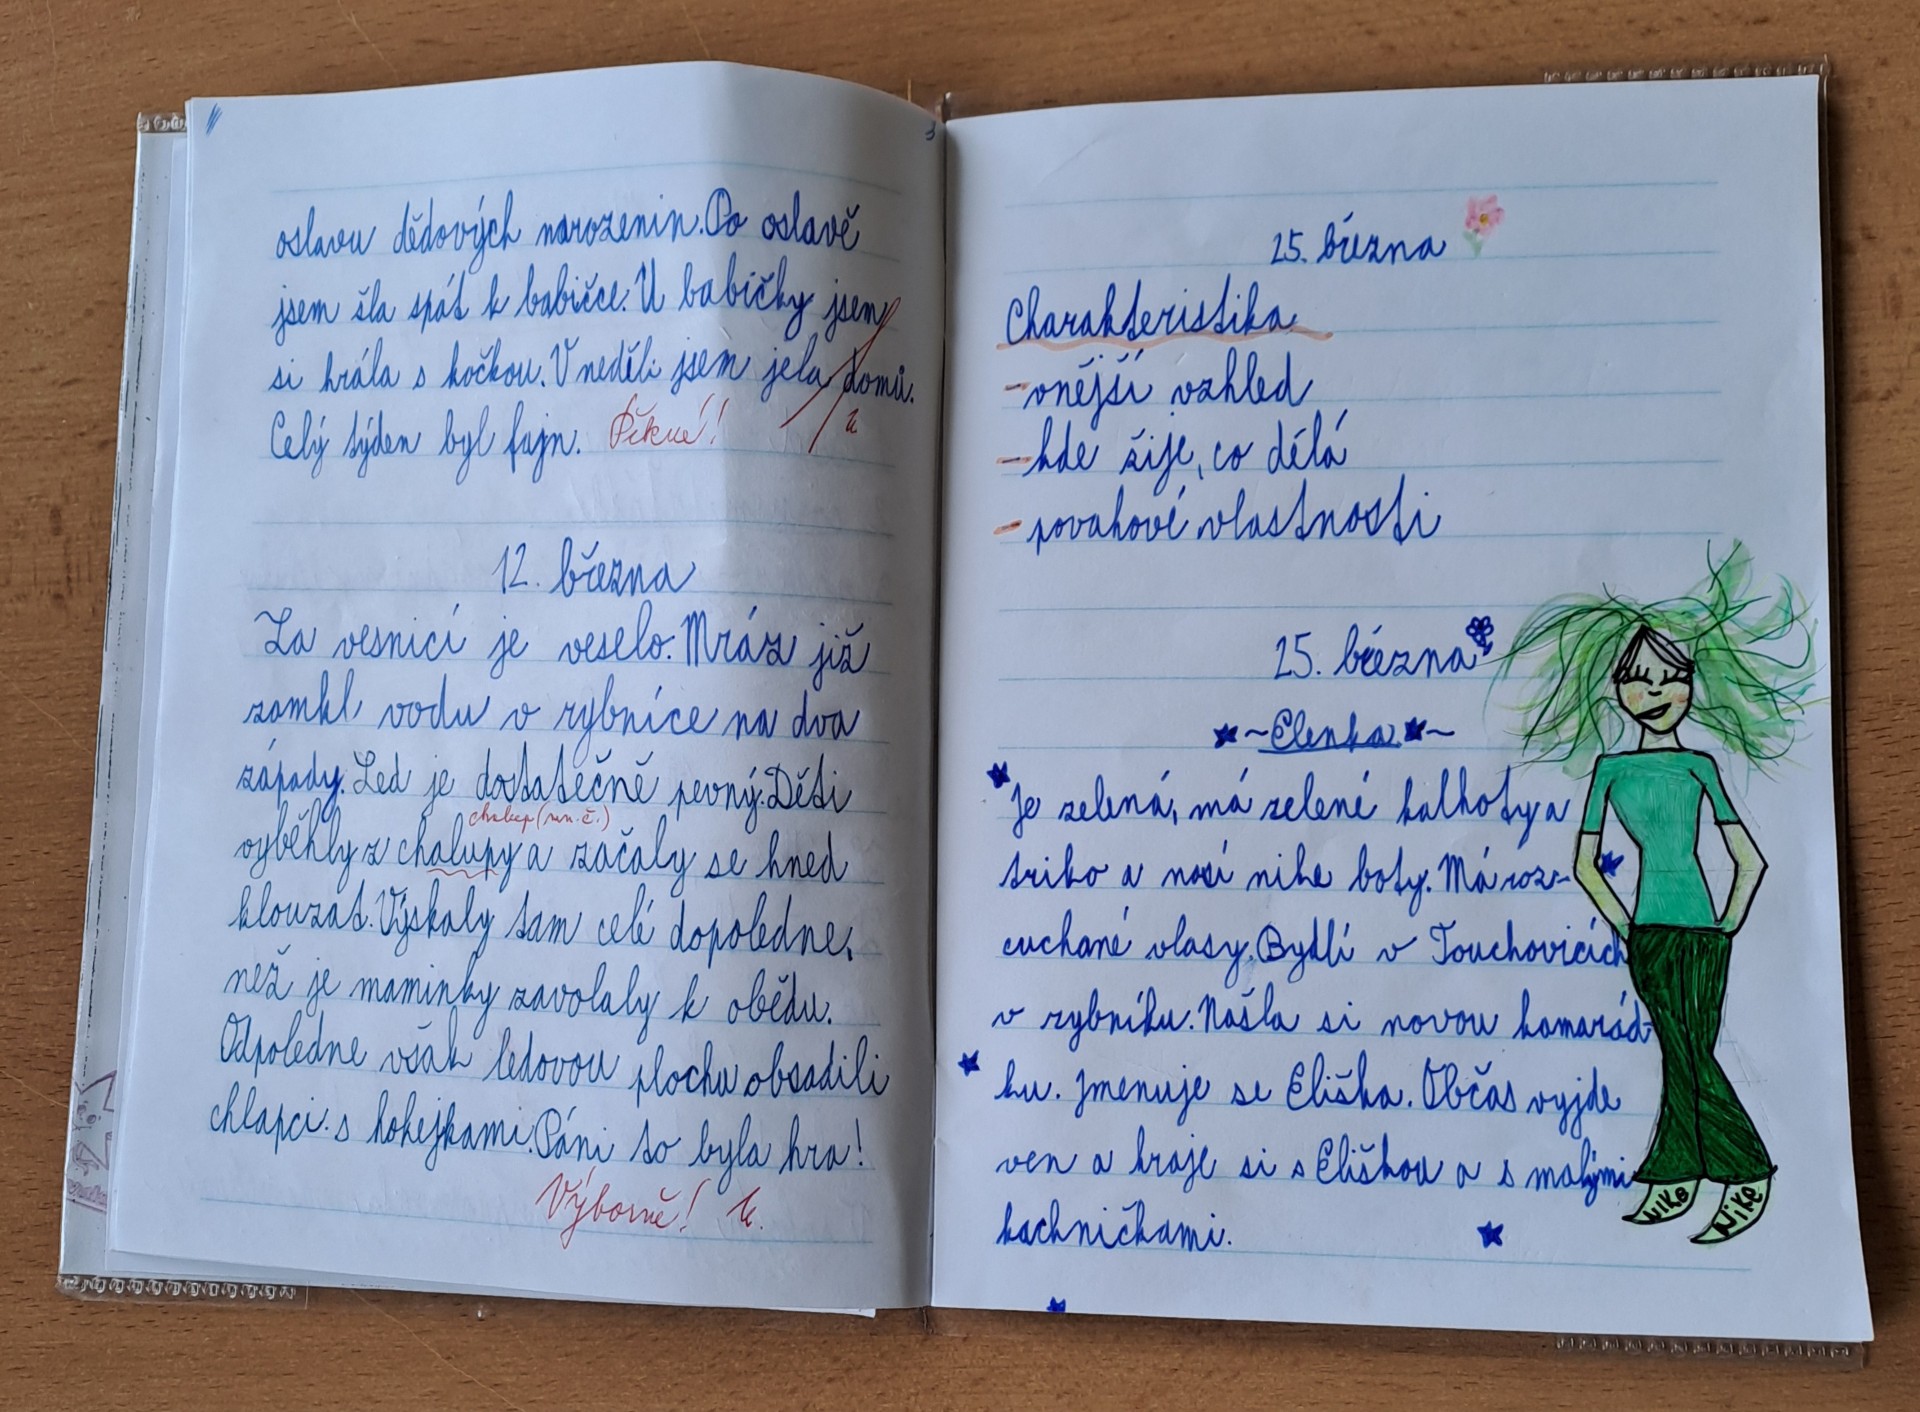 oslavu dědových narozenin. Po oslavě
jsem šla spát k babičce. U babičky jsem
si hrála s kočkou. V neděli jsem jela domů.
Celý týden byl fajn. Pěkné!
12. března
Za vesnicí je veselo. Mráz již
zamkl vodu v rybníce na dva
západy. Led je dostatečně pevný. Děti
chalup (mn. č.)
vyběhly z chalupy a začaly se hned
klouzat. Výskaly tam celé dopoledne,
než je maminky zavolaly k obědu.
Odpoledne však ledovou plochu obsadili
chlapci s hokejkami. Páni to byla hra!
Výborně!
25. března
Charakteristika
- vnější vzhled
- kde žije, co dělá
- povahové vlastnosti
25. března
~ Elenka ~
Je zelená, má zelené kalhoty a
triko a nosí nike boty. Má roz-
cuchané vlasy. Bydlí v Touchovicích
v rybníku. Našla si novou kamarád-
ku. Jmenuje se Eliška. Občas vyjde
ven a hraje si s Eliškou a s malými
kachničkami.
NIKE
NIKE